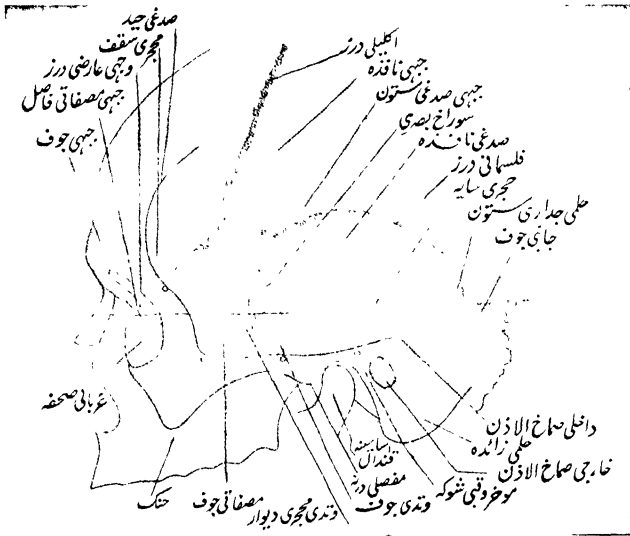 صدغی حید
مجری سقف
وجہی عارضی درز
جبہی مصفاتی فاصل
جبہی جوف
اکلیلی درز
جبہی نافذہ
جبہی صدغی ستون
سوراخ بصری
صدغی نافذہ
فلسمانی درز
حجری سایہ
حلمی جداری ستون
جانبی جوف
غربالی صحفہ
حنک
مصفاتی جوف
وتدی مجری دیوار
وتدی جوف
مفصلی درنہ
قندال
موخر وقبی شوکہ
خارجی صماخ الاذن
حلمی زائدہ
داخلی صماخ الاذن